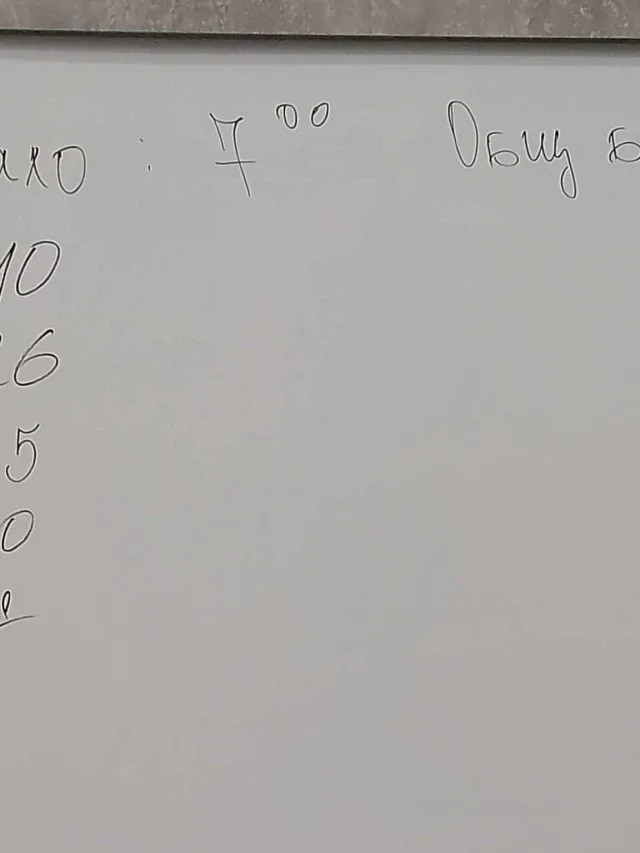 ало : 7⁰⁰ Общ б
10
26
5
0